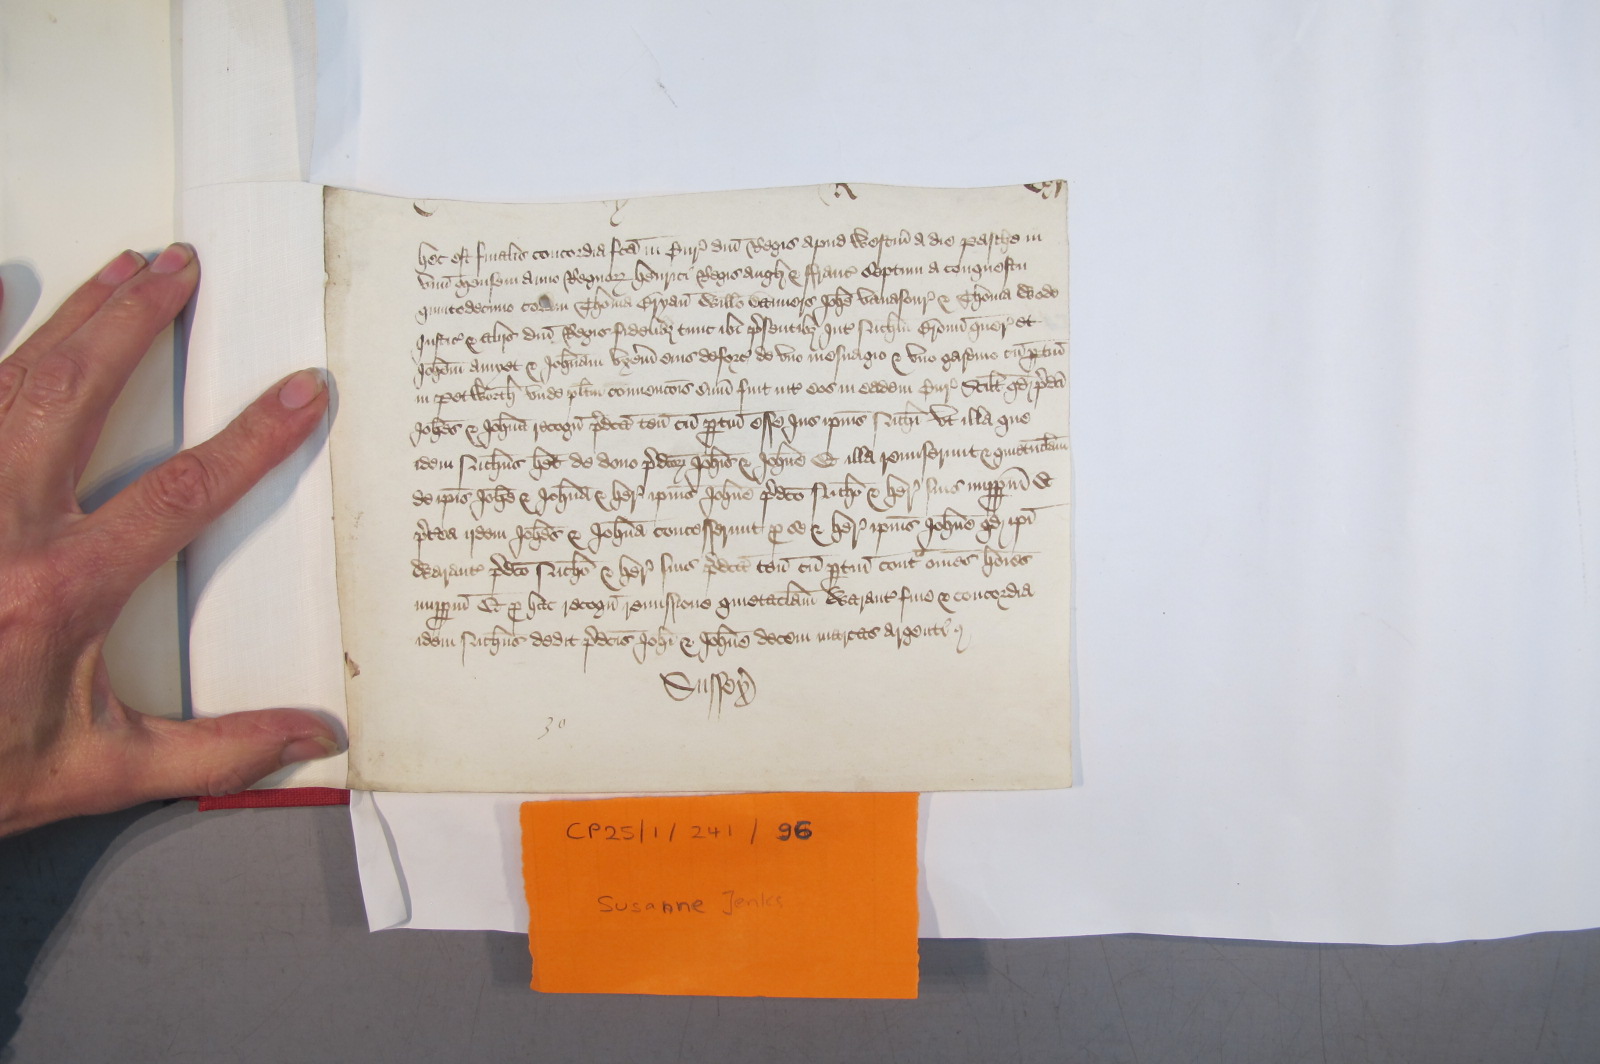 Hec est finalis concordia fca in Cur dni Regis apud Westm a die Pasche in
unu Mensem anno Regnor Henrici Regis Angl & Franc Septimi a conquestu
quintodecimo coram Thoma Bryan Willo Danvers Johe Vavasour & Thoma Wode
Justic & aliis dni Regis fidelibz tunc ibi presentibz Int Ricm quer et
Johem & Johnam uxem eius deforc de uno mesuagio & uno gardino cu ptin
in Petworth unde plitm convencois sum fuit int eos in eadem Cur Scilt qd pdci
Johes & Johna recogn pdca ten cu ptin esse Jus ipius Rici ut illa que
idem Ricus het de dono pdcor Johis & Johne Et illa remiserunt & quietuclam
de ipis Johe & Johna & her ipius Johne pdco Rico & her suis imppm Et
pterea iidem Johes & Johna concesserunt p se & her ipius Johne qd ipi
Warant pdco Rico & her suis pdca ten cu ptin cont omes hoies
imppm Et p hac recogn remissione quietaclam Warant fine & concordia
idem Ricus dedit pdcis Johi & Johne decem marcas argenti
Sussex
30
CP25/1/241/96
Susanne Jenks